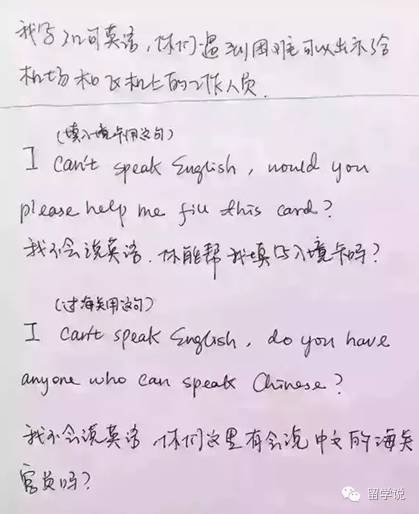 我写了几句英语，你们遇到困难可以出示给
机场和飞机上的工作人员.
（填入境卡用这句）
I can't speak English, would you
please help me fill this card?
我不会说英语.你能帮我填写入境卡吗？
（过海关用这句）
I can't speak English, do you have
anyone who can speak Chinese?
我不会说英语，你们这里有会说中文的海关
官员吗？
留学说